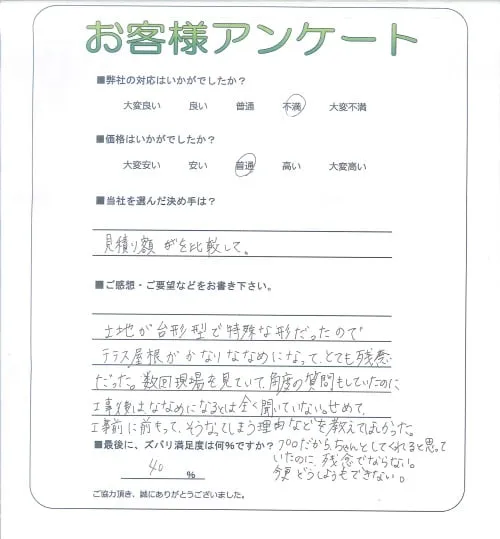 お客様アンケート
■弊社の対応はいかがでしたか？
大変良い 良い 普通 不満 大変不満
■価格はいかがでしたか？
大変安い 安い 普通 高い 大変高い
■当社を選んだ決め手は？
見積り額 を比較して。
■ご感想・ご要望などをお書き下さい。
土地が台形型で特殊な形だったので
テラス屋根がかなりななめになって、とても残念
だった。数回現場を見ていて、角度の質問もしていたのに
工事後はななめになるとは全く聞いていない。せめて、
工事前に前もって、そうなってしまう理由などを教えてほしかった。
■最後に、ズバリ満足度は何％ですか？
40 %
プロだから、ちゃんとしてくれると思って
いたのに、残念でならない。
今更どうしようもできない。
ご協力頂き、誠にありがとうございました。